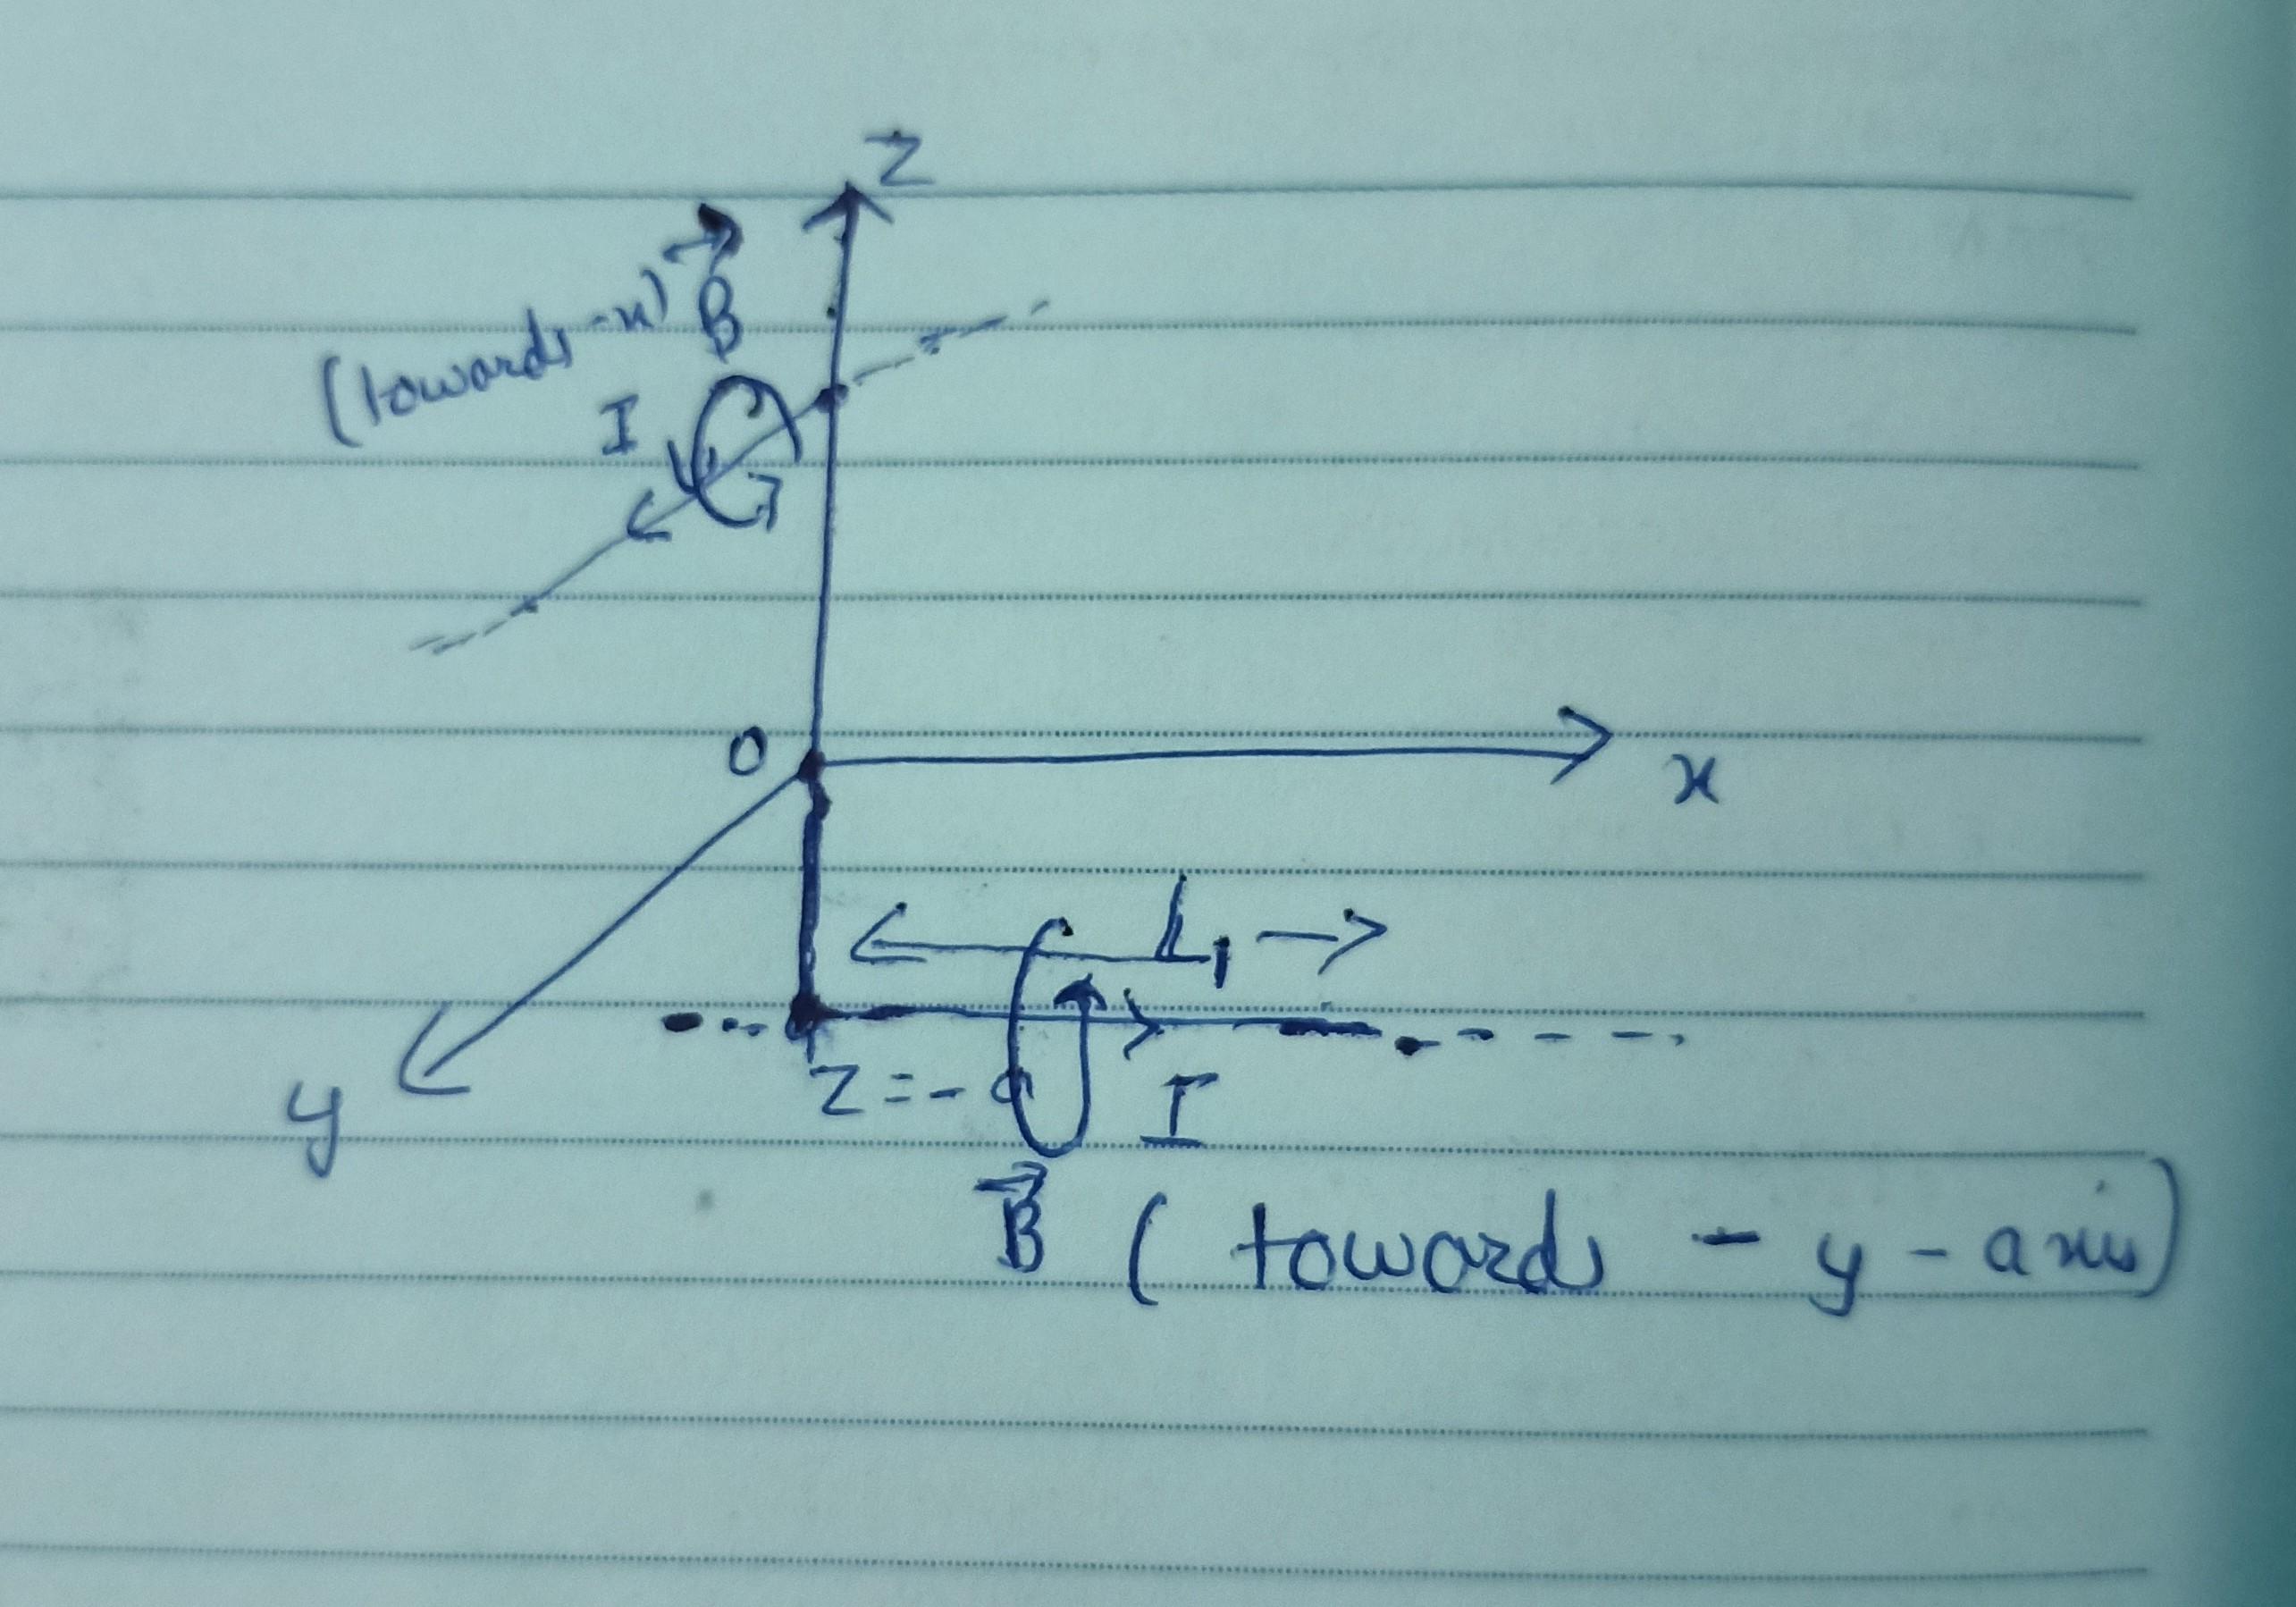 Z
B
(towards -x)
I
O
x
L₁
Z = - a
I
y
B ( towards - y - axis)